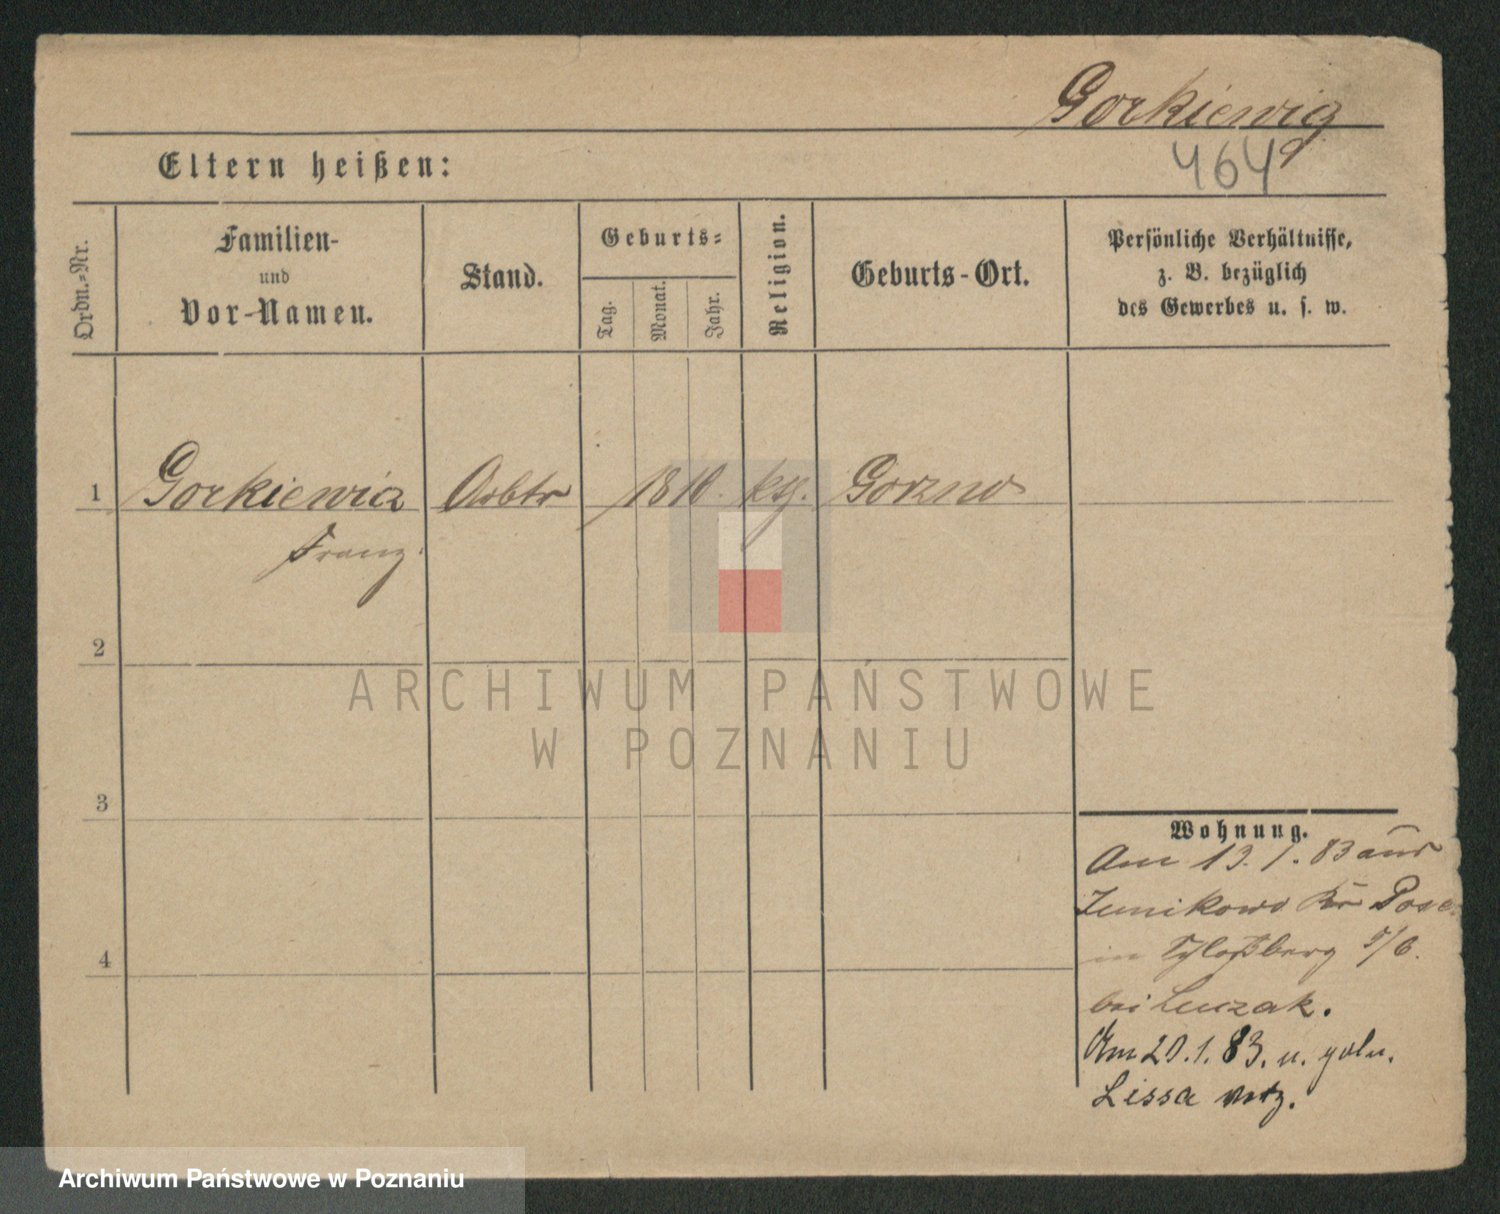 Gorkiewicz
464
Eltern heißen:
Ordn.-Nr.
Familien-
und
Vor-Namen.
Stand.
Geburts-
Tag.
Monat.
Jahr.
Religion.
Geburts-Ort.
Persönliche Verhältnisse,
z. B. bezüglich
des Gewerbes u. s. w.
1
Gorkiewicz
Franz
Arbtr
1810.
Gorzno
2
3
4
Wohnung.
Am 13. 1. 83 aus
Junikowo Kr
in 5/6.
bei Luczak.
Am 20. 1. 83. n. poln.
Lissa
ARCHIWUM PAŃSTWOWE
W POZNANIU
Archiwum Państwowe w Poznaniu